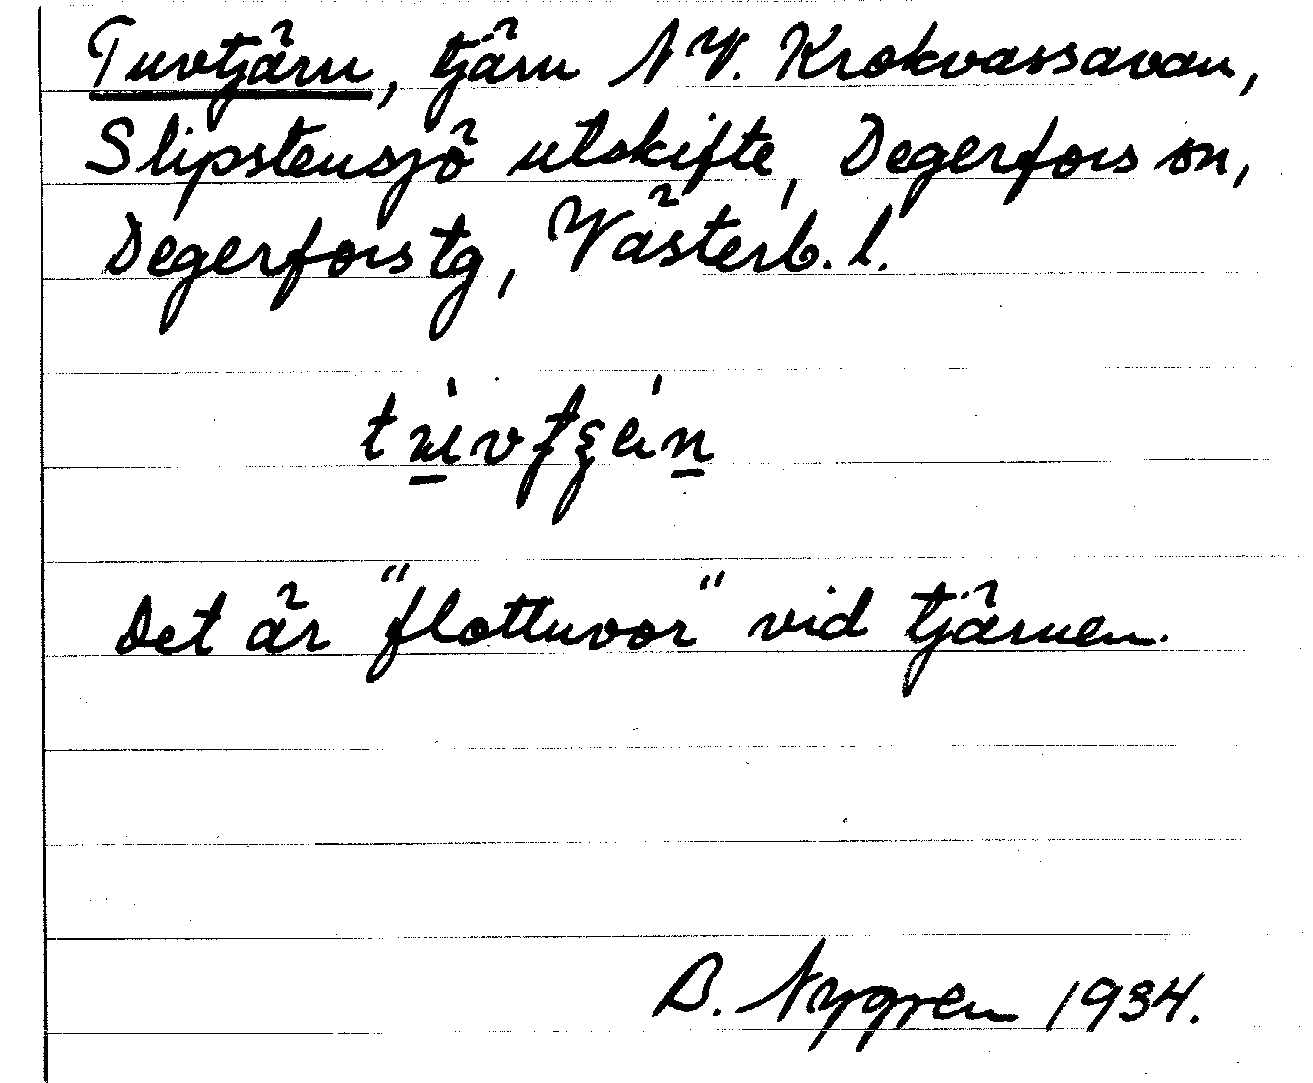 Tuvtjärn, tjärn NV. Krokvassavan,
Slipstensjö utskifte, Degerfors sn,
Degerfors tg, Västerb. l.
Det är "flottuvor" vid tjärnen.
B. Nygren 1934.